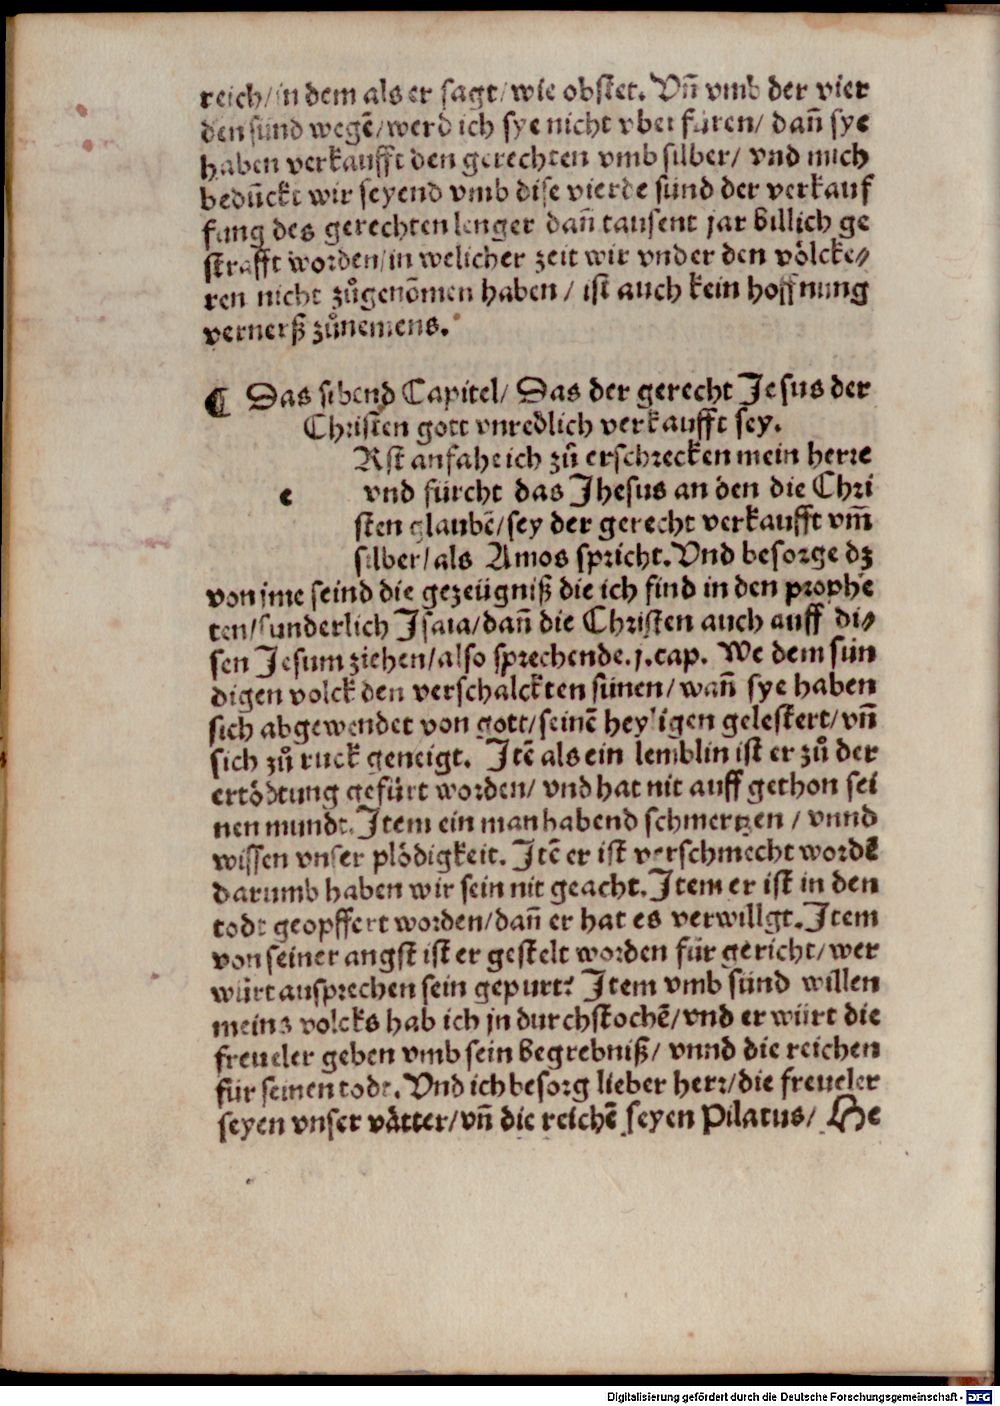 reich/in dem als er sagt/wie obstet. Vñ vmb der vier
den sünd wegē/werd ich sye nicht vber füren/ dañ sye
haben verkaufft den gerechten vmb silber/ vnd mich
bedückt wir seyend vmb dise vierde sünd der verkauf
fung des gerechten lenger dañ tausent jar billich ge
strafft worden/in welicher zeit wir vnder den völcke⸗
ren nicht zůgenōmen haben / ist auch kein hoffnung
vernerß zůnemens.
¶ Das sibend Capitel/ Das der gerecht Jesus der
Christen gott vnredlich verkaufft sey.
Rst anfahe ich zů erschrecken mein herre
e vnd fürcht das Jhesus an den die Chri
sten glaubē/sey der gerecht verkaufft vm̄
silber/als Amos spricht. Vnd besorge dz
von jme seind die gezeügniß die ich find in den prophe
ten/sunderlich Jsaia/dañ die Christen auch auff di⸗
sen Jesum ziehen/also sprechende.j.cap. We dem sün
digen volck den verschalckten sünen/wañ sye haben
sich abgewendet von gott/seinē heyligen gelestert/vñ
sich zů ruck geneigt. Jtē als ein lemblin ist er zů der
ertödtung gefürt worden/ vnd hat nit auff gethon sei
nen mundt. Jtem ein man habend schmertzen / vnnd
wissen vnser plödigkeit. Jtē er ist verschmecht wordē
darumb haben wir sein nit geacht. Jtem er ist in den
todt geopffert worden/dañ er hat es verwillgt. Jtem
von seiner angst ist er gestelt worden für gericht/wer
würt ausprechen sein gepurt? Jtem vmb sünd willen
meins volcks hab ich jn durchstochē/vnd er würt die
freueler geben vmb sein begrebniß/ vnnd die reichen
für seinen todt. Vnd ich besorg lieber herr/die freueler
seyen vnser vätter/vñ die reichē seyen Pilatus/ He
Digitalisierung gefördert durch die Deutsche Forschungsgemeinschaft - DFG